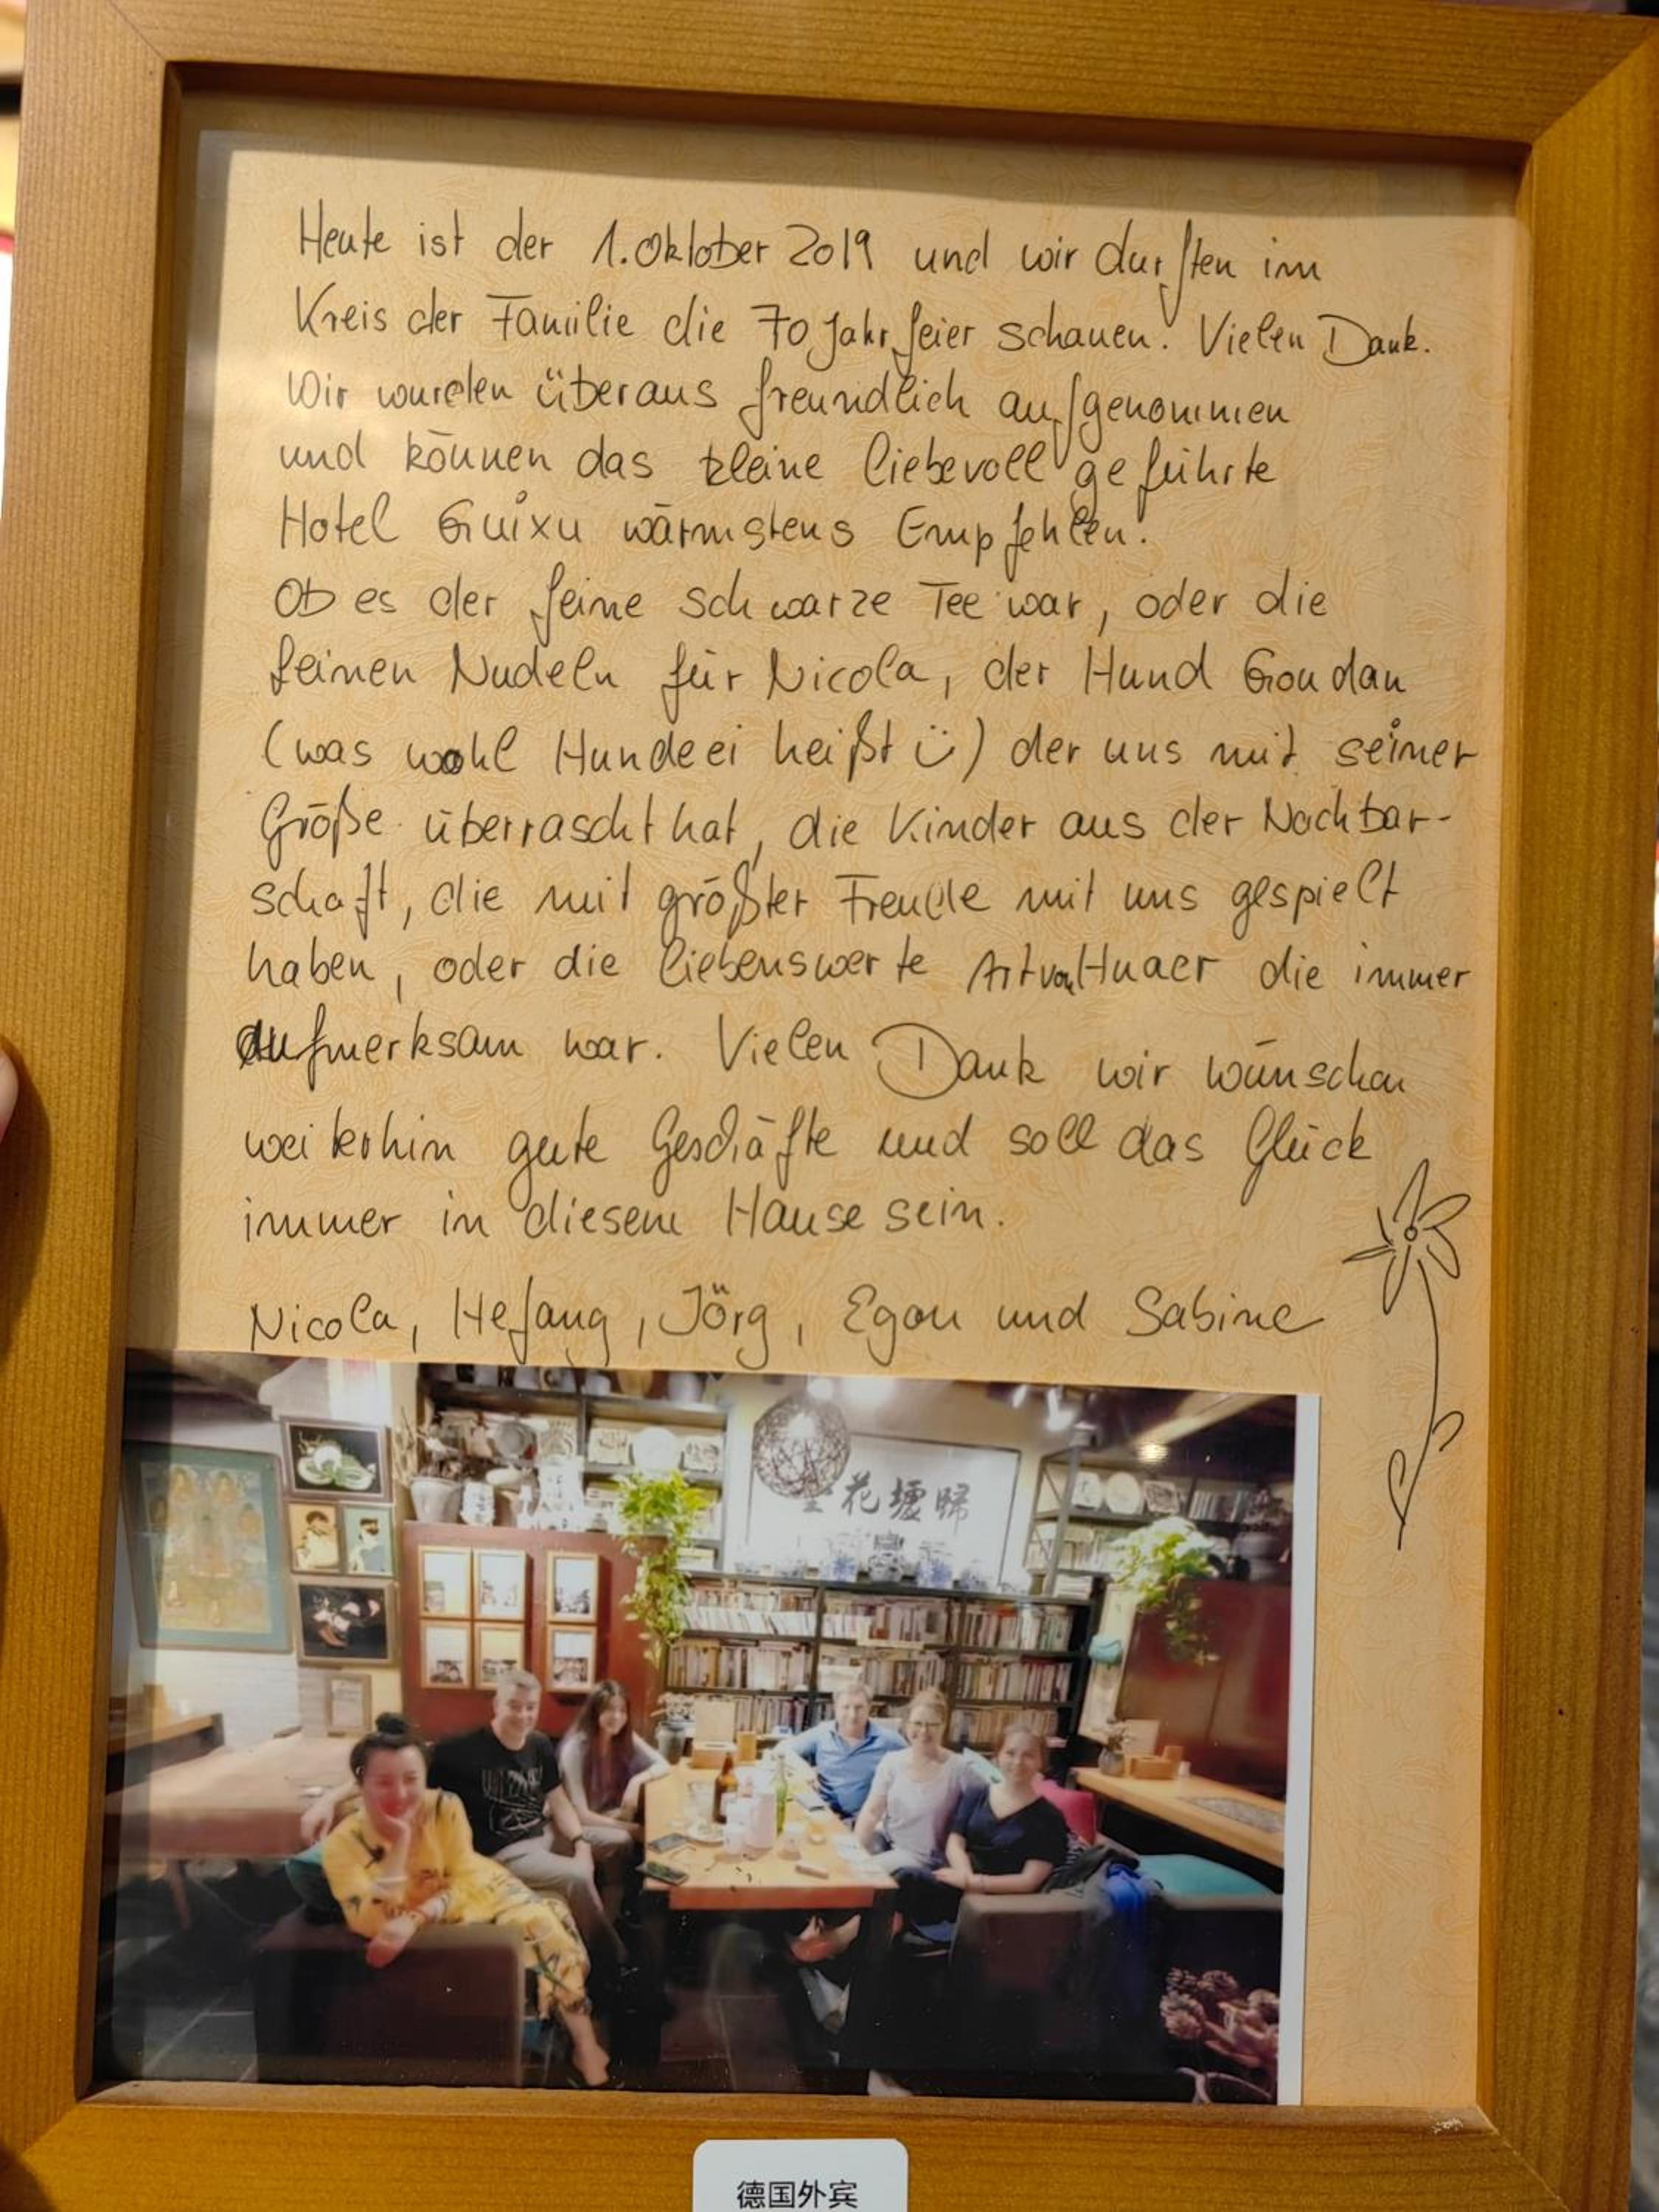 Heute ist der 1. Oktober 2019 und wir durften im
Kreis der Familie die 70 Jahrfeier schauen. Vielen Dank.
Wir wurden überaus freundlich aufgenommen
und können das kleine liebevoll geführte
Hotel Guixu wärmstens Empfehlen.
Ob es der feine schwarze Tee war, oder die
feinen Nudeln für Nicola, der Hund Goudan
(was wohl Hundeei heißt ü) der uns mit seiner
Größe überrascht hat, die Kinder aus der Nachbar-
schaft, die mit größter Freude mit uns gespielt
haben, oder die liebenswerte Art von Huaer die immer
aufmerksam war. Vielen Dank wir wünschen
weiterhin gute Geschäfte und soll das Glück
immer in diesem Hause sein.
Nicola, Hefang, Jörg, Egon und Sabine
花壚歸
德国外宾